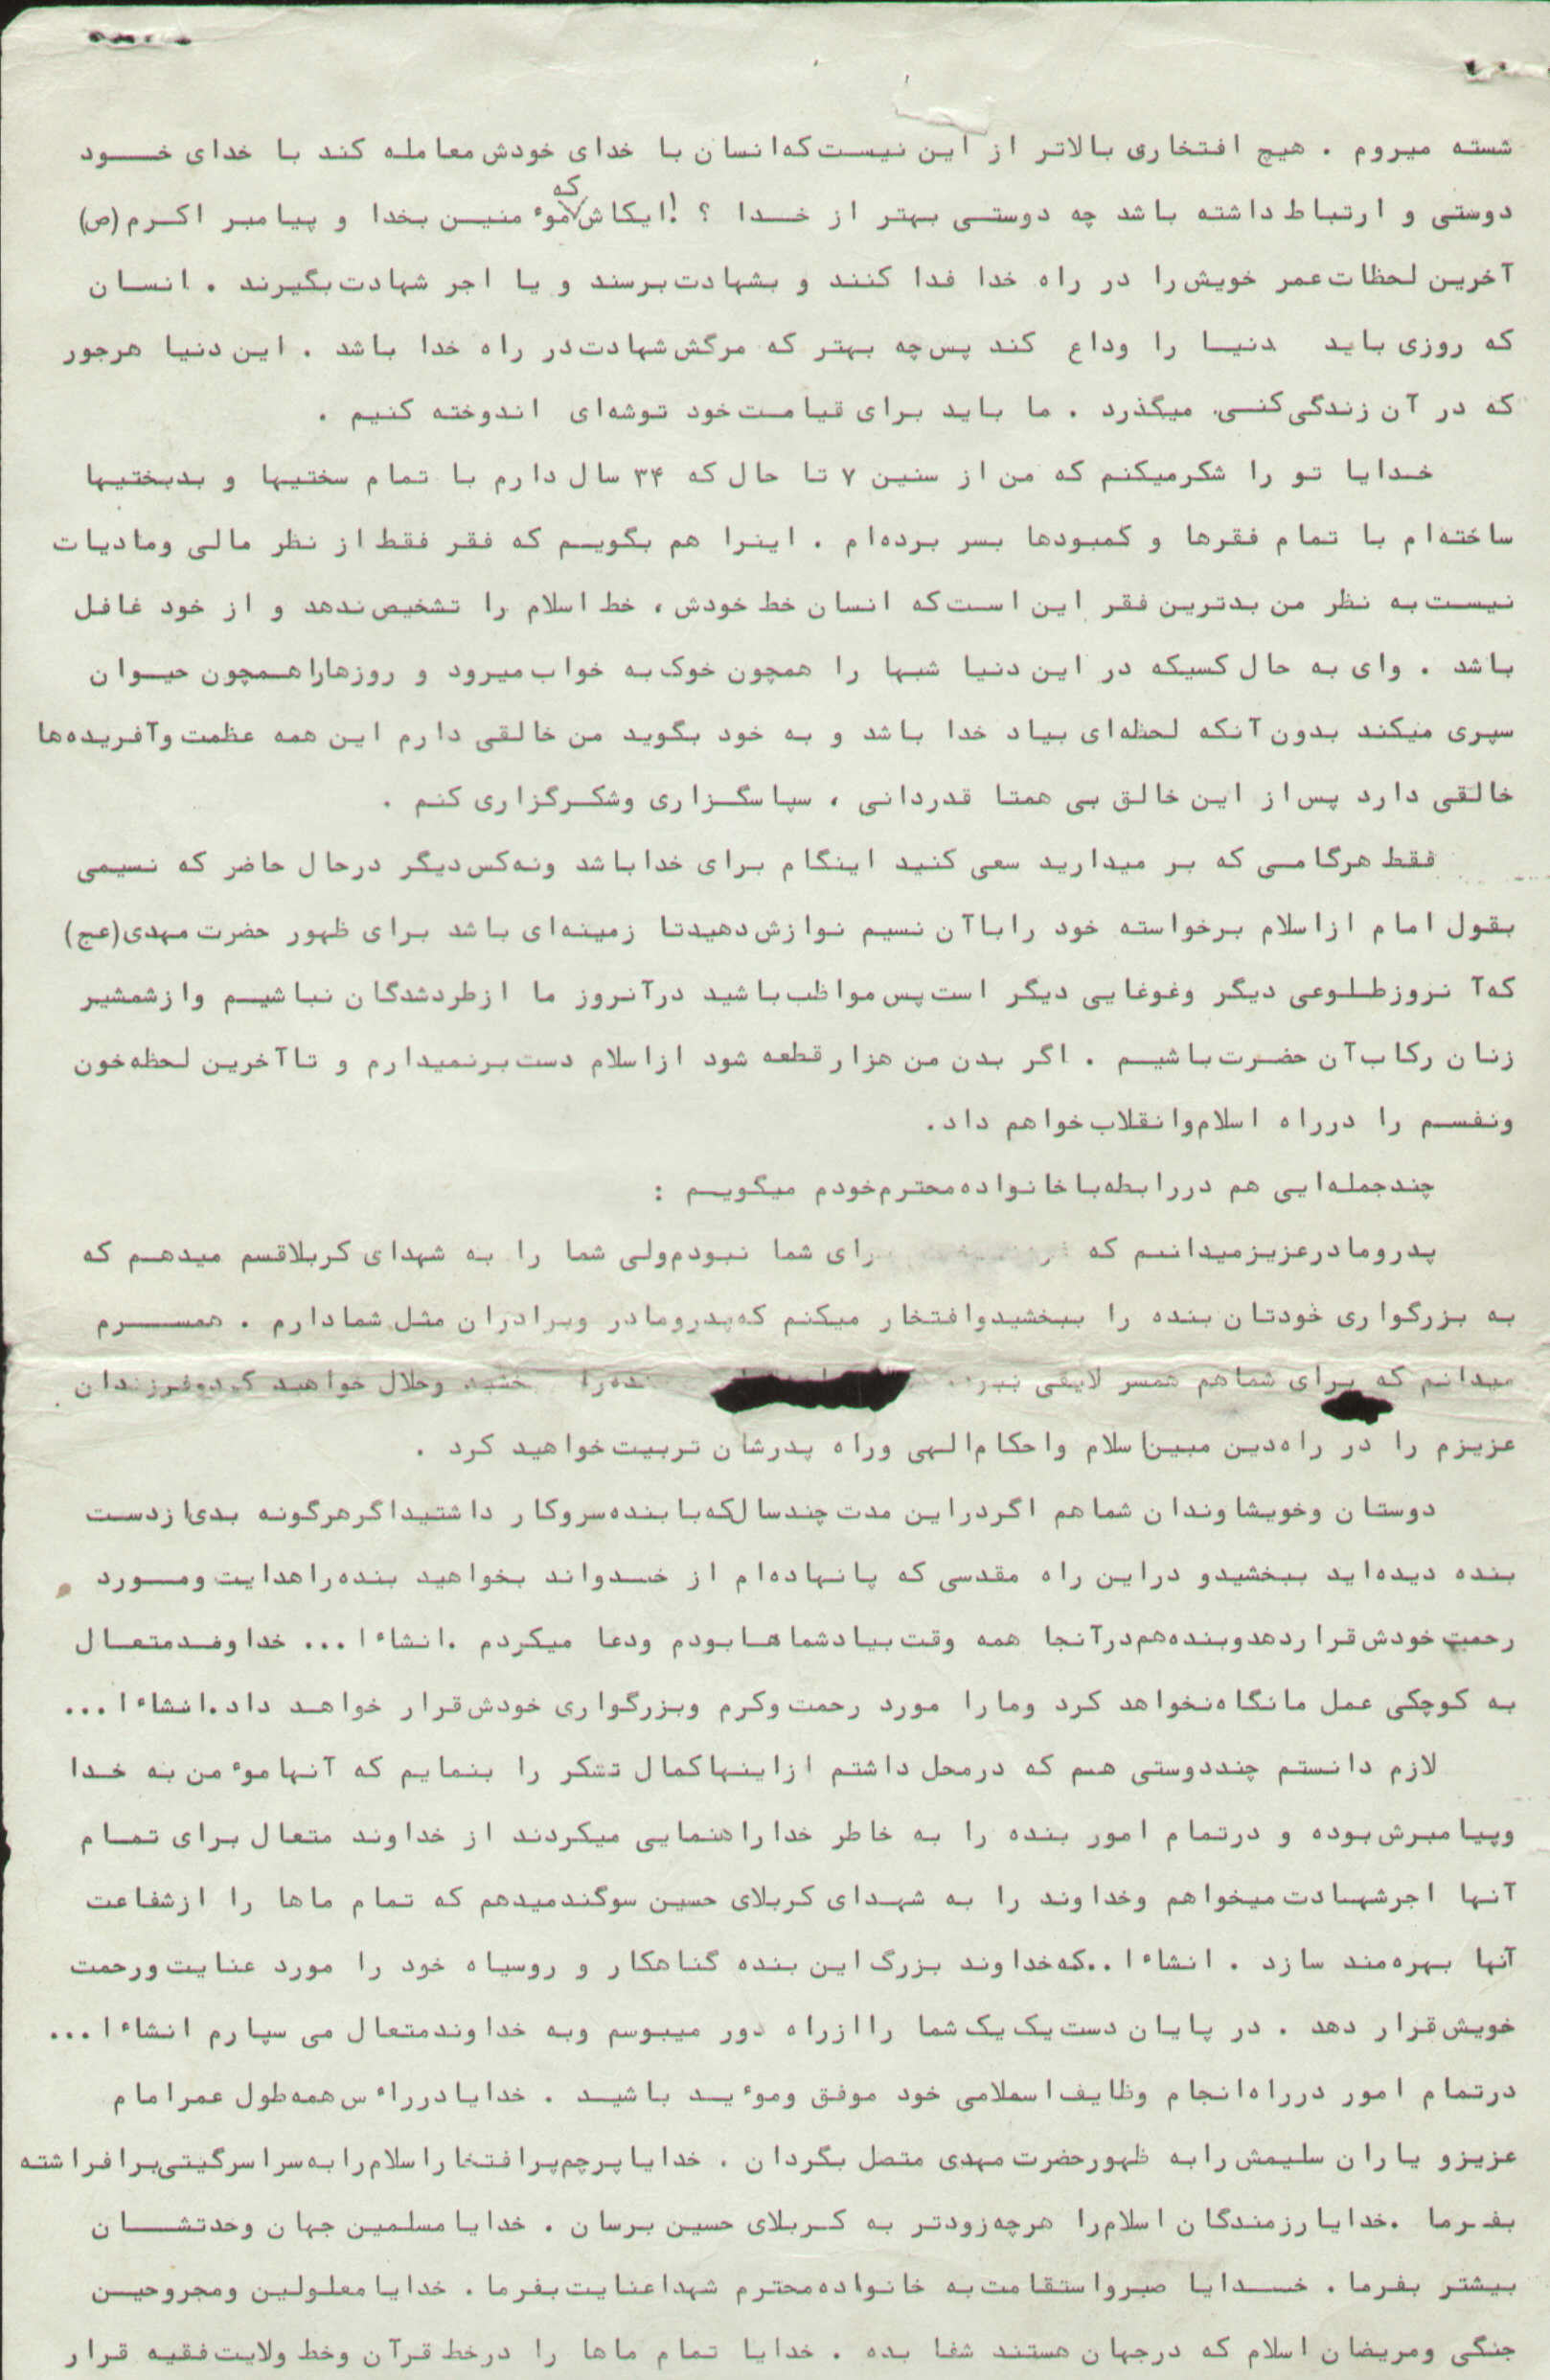 شسته میروم . هیچ افتخاری بالاتر از این نیست که انسان با خدای خودش معامله کند با خدای خود
دوستی و ارتباط داشته باشد چه دوستی بهتر از خدا ؟ ! ایکاش که موٴمنین بخدا و پیامبر اکرم (ص)
آخرین لحظات عمر خویش را در راه خدا فدا کنند و بشهادت برسند و یا اجر شهادت بگیرند . انسان
که روزی باید دنیا را وداع کند پس چه بهتر که مرگش شهادت در راه خدا باشد . این دنیا هرجور
که در آن زندگی کنی میگذرد . ما باید برای قیامت خود توشه‌ای اندوخته کنیم .
خدایا تو را شکرمیکنم که من از سنین ۷ تا حال که ۳۴ سال دارم با تمام سختیها و بدبختیها
ساخته‌ام با تمام فقرها و کمبودها بسر برده‌ام . اینرا هم بگویم که فقر فقط از نظر مالی ومادیات
نیست به نظر من بدترین فقر این است که انسان خط خودش ، خط اسلام را تشخیص ندهد و از خود غافل
باشد . وای به حال کسیکه در این دنیا شبها را همچون خوک به خواب میرود و روزهارا همچون حیوان
سپری میکند بدون آنکه لحظه‌ای بیاد خدا باشد و به خود بگوید من خالقی دارم این همه عظمت وآفریده‌ها
خالقی دارد پس از این خالق بی همتا قدردانی ، سپاسگزاری وشکرگزاری کنم .
فقط هرگامی که بر میدارید سعی کنید اینگام برای خدا باشد ونه کس دیگر درحال حاضر که نسیمی
بقول امام از اسلام برخواسته خود را باآن نسیم نوازش دهید تا زمینه‌ای باشد برای ظهور حضرت مهدی(عج)
که آنروز طلوعی دیگر وغوغایی دیگر است پس مواظب باشید درآنروز ما از طردشدگان نباشیم وازشمشیر
زنان رکاب آن حضرت باشیم . اگر بدن من هزار قطعه شود از اسلام دست برنمیدارم و تا آخرین لحظه خون
ونفسم را درراه اسلام وانقلاب خواهم داد.
چند جمله‌ایی هم دررابطه با خانواده محترم خودم میگویم :
پدرومادر عزیز میدانم که برای شما نبودم ولی شما را به شهدای کربلا قسم میدهم که
به بزرگواری خودتان بنده را ببخشید وافتخار میکنم که پدرومادر وبرادران مثل شما دارم . همسرم
میدانم که برای شما هم همسر لایقی وحلال خواهید کرد وفرزندان
عزیزم را در راه دین مبین اسلام واحکام الهی وراه پدرشان تربیت خواهید کرد .
دوستان وخویشاوندان شما هم اگر دراین مدت چند سال که با بنده سروکار داشتید اگر هرگونه بدی ازدست
بنده دیده‌اید ببخشید و دراین راه مقدسی که پا نهاده‌ام از خدواند بخواهید بنده را هدایت ومورد
رحمت خودش قرار دهد وبنده هم درآنجا همه وقت بیاد شماها بودم ودعا میکردم .انشاء ا ... خداوند متعال
به کوچکی عمل ما نگاه نخواهد کرد ومارا مورد رحمت وکرم وبزرگواری خودش قرار خواهد داد .انشاء ا ...
لازم دانستم چند دوستی هم که درمحل داشتم ازاینها کمال تشکر را بنمایم که آنها موٴمن به خدا
وپیامبرش بوده و درتمام امور بنده را به خاطر خدا راهنمایی میکردند از خداوند متعال برای تمام
آنها اجر شهادت میخواهم وخداوند را به شهدای کربلای حسین سوگند میدهم که تمام ماها را ازشفاعت
آنها بهره‌مند سازد . انشاء ا ..که خداوند بزرگ این بنده گناهکار و روسیاه خود را مورد عنایت ورحمت
خویش قرار دهد . در پایان دست یک یک شما را ازراه دور میبوسم وبه خداوند متعال می سپارم انشاء ا ...
درتمام امور درراه انجام وظایف اسملامی خود موفق وموٴید باشید . خدایا درراء س همه طول عمر امام
عزیزو یاران سلیمش رابه ظهور حضرت مهدی متصل بگردان . خدایا پرچم پرافتخار اسلام را به سراسرگیتی برافراشته
بفرما .خدایا رزمندگان اسلام را هرچه زودتر به کربلای حسین برسان . خدایا مسلمین جهان وحدتشان
بیشتر بفرما . خدایا صبرواستقامت به خانواده محترم شهدا عنایت بفرما . خدایا معلولین ومجروحین
جنگی ومریضان اسلام که درجهان هستند شفا بده . خدایا تمام ماها را درخط قرآن وخط ولایت فقیه قرار